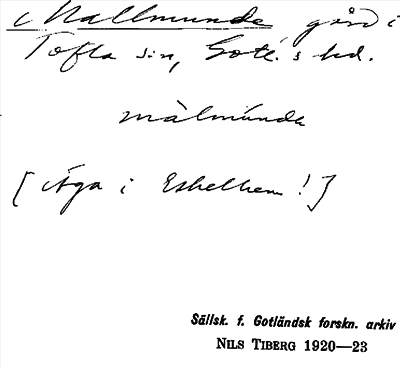 Mallmunde gård i
Tofta sn, Gotl. s hd.
màlmúnde
[Äga i Eskelhem!]
Sällsk. f. Gotländsk forskn. arkiv
NILS TIBERG 1920—23